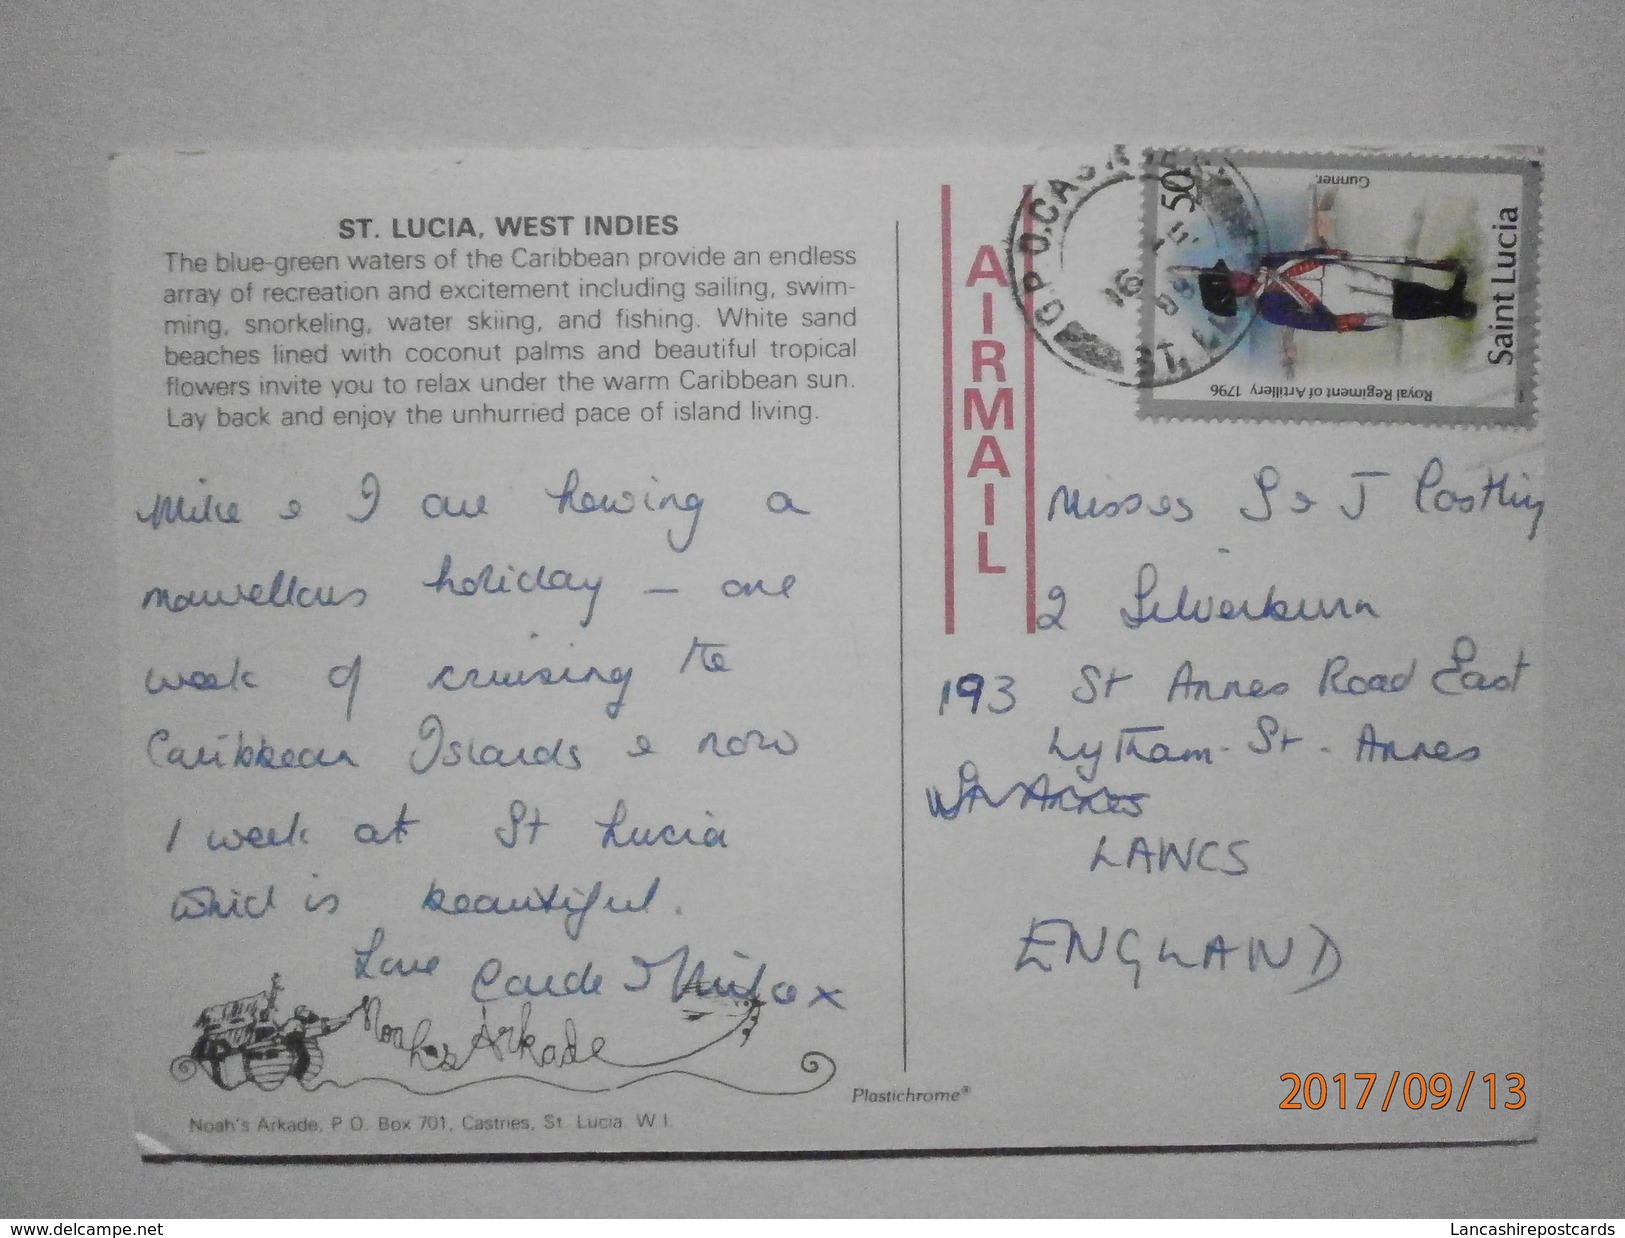 ST. LUCIA, WEST INDIES
The blue-green waters of the Caribbean provide an endless
array of recreation and excitement including sailing, swim-
ming, snorkeling, water skiing, and fishing. White sand
beaches lined with coconut palms and beautiful tropical
flowers invite you to relax under the warm Caribbean sun.
Lay back and enjoy the unhurried pace of island living.
Mike & I are having a
marvellous holiday – one
week of cruising the
Caribbean Islands & now
1 week at St Lucia
which is beautiful.
Love
x
Noah's Arkade
Noah's Arkade, P.O. Box 701, Castries, St. Lucia. W.I.
Plastichrome®
AIRMAIL
G.P.O. CASTRIES
16
ST. LUCIA
50
Gunner.
Saint Lucia
Royal Regiment of Artillery 1796
Misses S & J
2 Silverburn
193 St Annes Road East
Lytham - St - Annes
St Annes
LANCS
ENGLAND
2017/09/13
www.delcampe.net
Lancashirepostcards